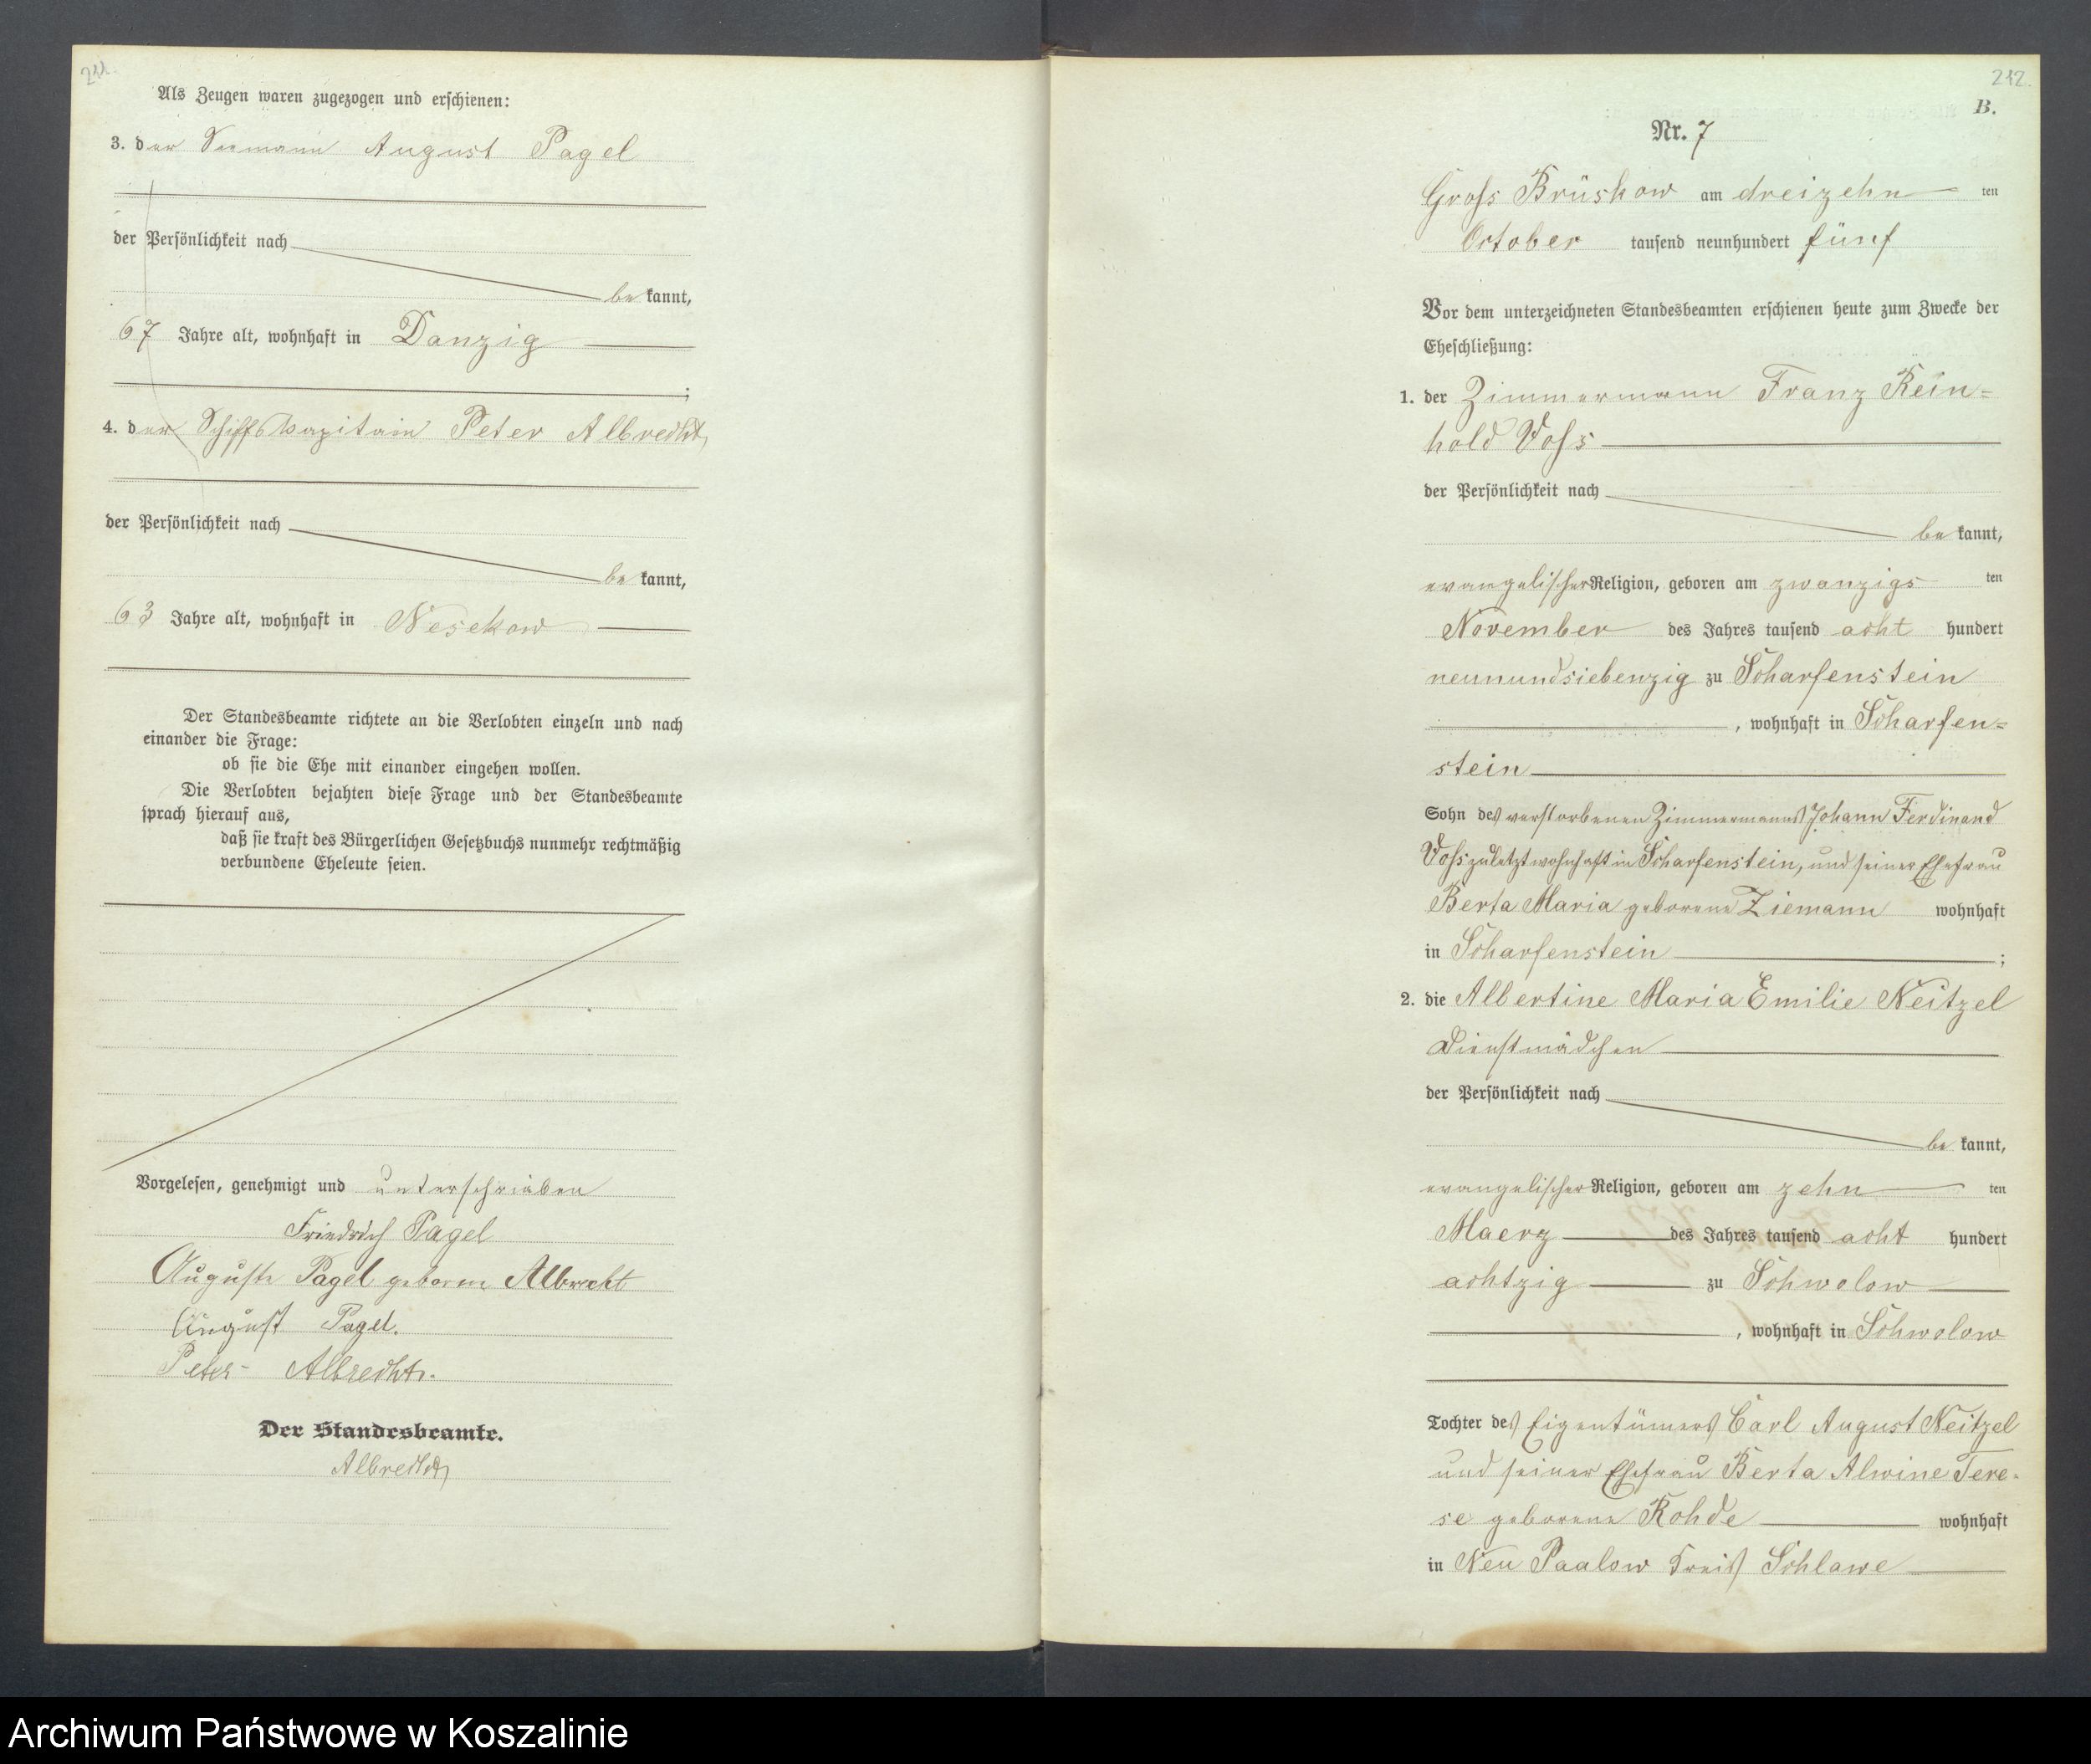 211.
Als Zeugen waren zugezogen und erschienen:
3. der Seemann August Pagel
der Persönlichkeit nach
be kannt,
67 Jahre alt, wohnhaft in Danzig
;
4. der Schiffskapitain Peter Albrecht,
der Persönlichkeit nach
be kannt,
63 Jahre alt, wohnhaft in Nesekow
Der Standesbeamte richtete an die Verlobten einzeln und nach
einander die Frage:
ob sie die Ehe mit einander eingehen wollen.
Die Verlobten bejahten diese Frage und der Standesbeamte
sprach hierauf aus,
daß sie kraft des Bürgerlichen Gesetzbuchs nunmehr rechtmäßig
verbundene Eheleute seien.
Vorgelesen, genehmigt und unterschrieben
Friedrich Pagel
Auguste Pagel geborne Albrecht
August Pagel.
Peter Albrecht.
Der Standesbeamte.
Albrecht
212.
B.
Nr. 7
Gross Brüskow am dreizehn ten
October tausend neunhundert fünf
Vor dem unterzeichneten Standesbeamten erschienen heute zum Zwecke der
Eheschließung:
1. der Zimmermann Franz Rein=
hold Voss
der Persönlichkeit nach
be kannt,
evangelischer Religion, geboren am zwanzigs ten
November des Jahres tausend acht hundert
neunundsiebenzig zu Scharfenstein
, wohnhaft in Scharfen=
stein
Sohn des verstorbenen Zimmermanns Johann Ferdinand
Voss zuletzt wohnhaft in Scharfenstein, und seiner Ehefrau
Berta Maria geborene Ziemann wohnhaft
in Scharfenstein ;
2. die Albertine Maria Emilie Neitzel
Dienstmädchen
der Persönlichkeit nach
be kannt,
evangelischer Religion, geboren am zehn ten
Maerz des Jahres tausend acht hundert
achtzig zu Schwolow
, wohnhaft in Schwolow
Tochter des Eigentümers Carl August Neitzel
und seiner Ehefrau Berta Alwine Tere-
se geborene Rohde wohnhaft
in Neu Paalow Kreis Schlawe
Archiwum Państwowe w Koszalinie